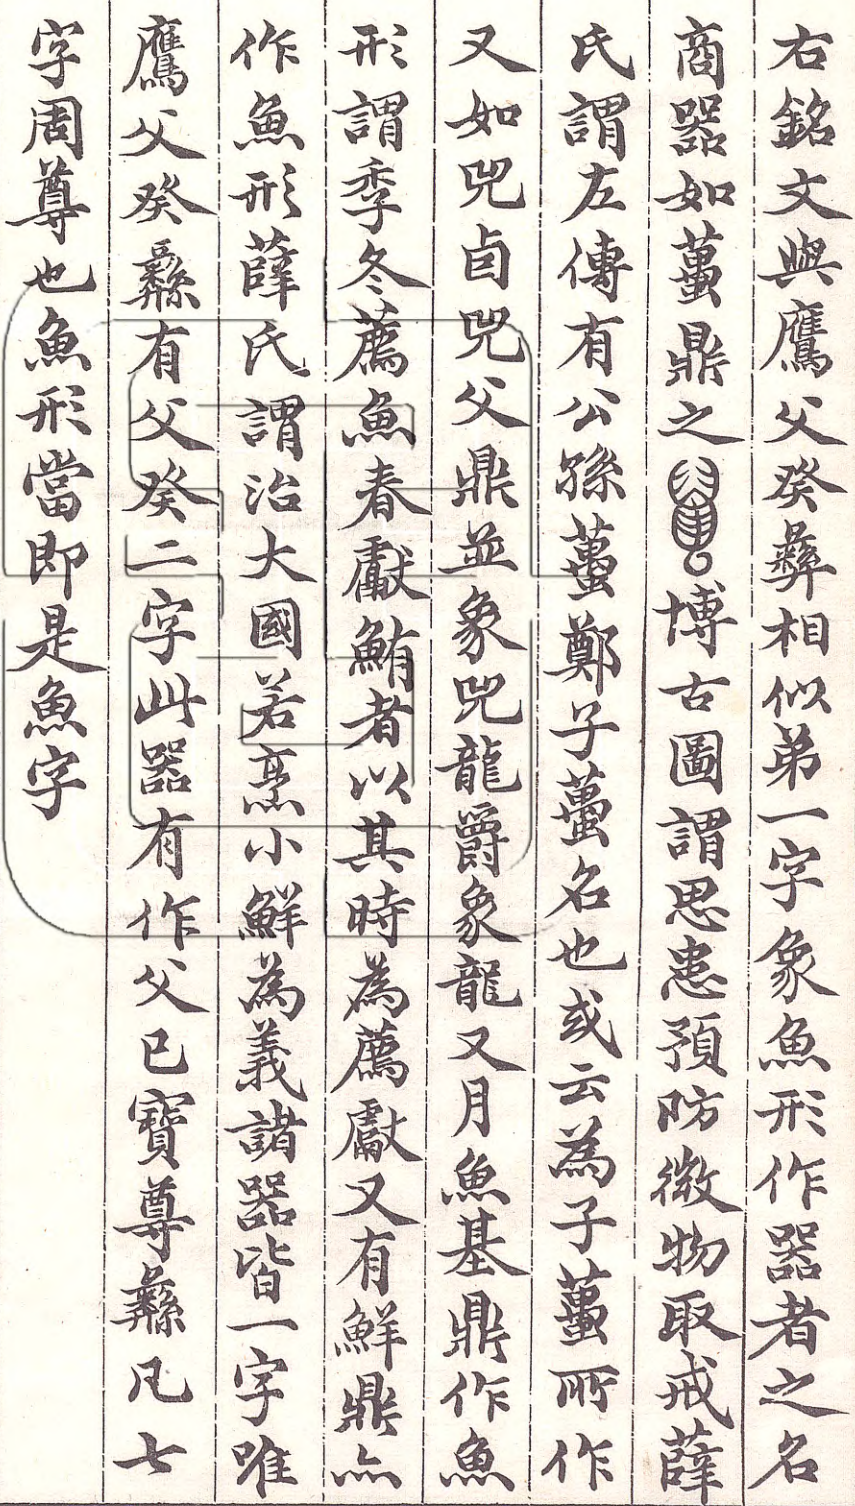 右銘文與鷹父癸彝相似弟一字象魚形作器者之名
商器如蠆鼎之博古圖謂思患預防微物取戒薛
氏謂左傳有公孫蠆鄭子蠆名也或云為子蠆所作
又如兕卣兕父鼎並象兕龍爵象龍又月魚基鼎作魚
形謂季冬薦魚春獻鮪者以其時為薦獻又有鮮鼎亦
作魚形薛氏謂治大國若烹小鮮為義諸器皆一字唯
鷹父癸彝有父癸二字此器有作父已寶尊彝凡七
字周尊也魚形當即是魚字